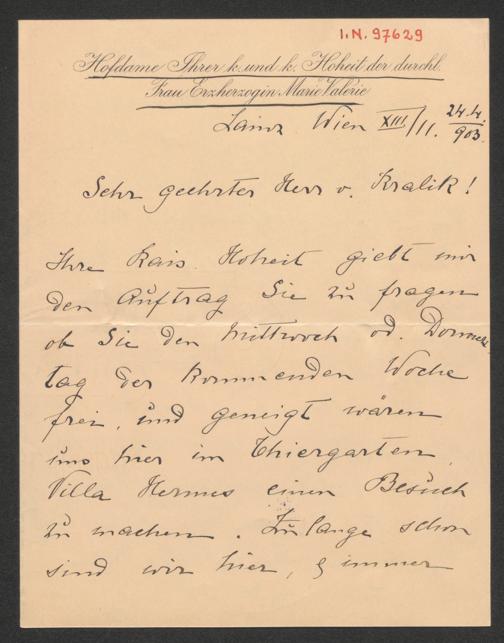 I.N. 97629
Hofdame Ihrer k. und k. Hoheit der durchl.
Frau Erzherzogin Marie Valerie
Lainz Wien XIII/11. 24.4.
903.
Sehr geehrter Herr v. Kralik!
Ihre Kais. Hoheit giebt mir
den Auftrag Sie zu fragen
ob Sie den Mittwoch od. Donners
tag der kommenden Woche
frei, und geneigt wären
uns hier im Thiergarten,
Villa Hermes einen Besuch
zu machen. Zu lange schon
sind wir hier, & immer